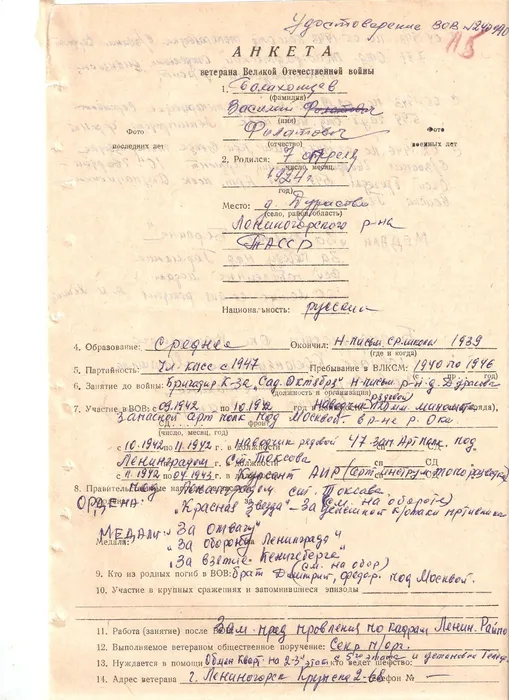 Удостоверение ВОВ № 240990
АНКЕТА
ветерана Великой Отечественной войны
1. Балахонцев
(фамилия)
Василий Филатович
(имя)
Филатович
(отчество)
Фото
последних лет
Фото
военных лет
2. Родился: 7 апреля
(число, месяц,
1924 г
год)
Место: д. Дурасово
(село, район, область)
Лениногорского р-на
ТАССР
Национальность: русский
4. Образование: Среднее Окончил: Н-письм. ср. школа 1939
(где и когда)
5. Партийность: Чл. КПСС с 1947 Пребывание в ВЛКСМ: 1940 по 1946
(с пр. год)
6. Занятие до войны: Бригадир К-за „Сад Октября" Н-письм р-н д. Дурасово
(должность и организация)
рядовой
7. Участие в ВОВ: с 09.1942 по 10.1942 год наводчик миномета
Запасной арт полк под Москвой в р-не р. Ока.
(число, месяц, год)
с 10.1942 по 11.1942 г. в должности наводчик рядовой 47 зап Арт Полк. под
Ленинградом ст. Токсова
с 11.1942 по 04.1943 г. Курсант АИР (арт. инстру-топо разведка)
8. Правительственные награды
под Ленинградом ст. Токсова.
ОРДЕНА: „Красная Звезда" (см. на обороте)
МЕДАЛИ: „За Отвагу"
Медали: „За оборону Ленинграда"
„За взятие Кенигсберга"
(см. на обор)
9. Кто из родных погиб в ВОВ: брат Дмитрий, Федор. под Москвой.
10. Участие в крупных сражениях и запомнившиеся эпизоды
11. Работа (занятие) после ВОВ: Зам. пред правления по кадрам Ленин. Райпо
12. Выполняемое ветераном общественное поручение: Секр п/орг.
13. Нуждается в помощи: Обмен Кварт. на 2-3 этот с 5го этажа и установке Телеф.
кто ведет шефство:
14. Адрес ветерана г. Лениногорск Крупска 2-68 Телефон № —